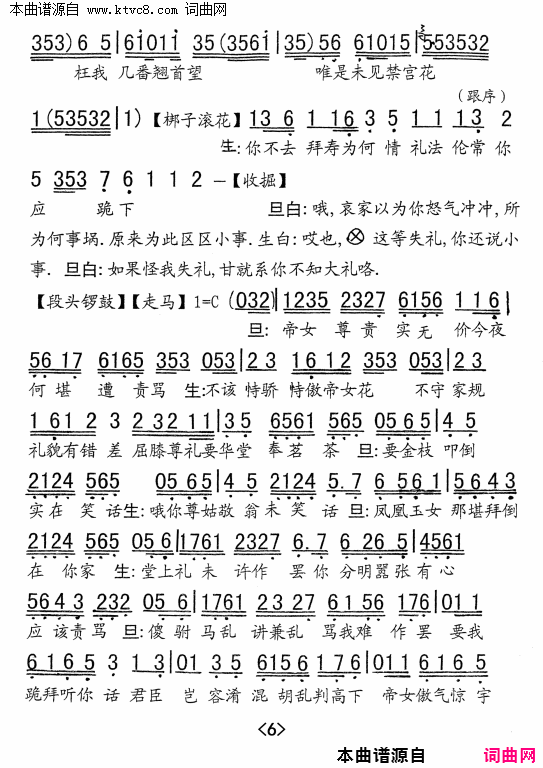 本曲谱源自 www.ktvc8.com 词曲网
353) 6 5 | 61011 35 (3561 | 35) 56 61015 | 553532
枉我 几番翘首望 唯是未见禁宫花
(跟序)
1 (53532 | 1) 【梆子滚花】 13 6 1 16 3 5 1 1 13 2
生:你不去 拜寿为何 情 礼法 伦常 你
5 353 7 6 1 1 2 — 【收掘】
应 跪下 旦白:哦,哀家以为你怒气冲冲,所
为何事埚.原来为此区区小事.生白:哎也,⊗ 这等失礼,你还说小
事. 旦白:如果怪我失礼,甘就系你不知大礼咯.
【段头锣鼓】【走马】1=C (032) | 1235 2327 6156 1 1 6 |
旦:帝女 尊贵 实无 价今夜
56 17 6165 353 053 | 2 3 16 12 353 053 | 2 3
何堪 遭 责骂 生:不该 恃骄 恃傲帝女花 不守家规
1 61 2 3 2 32 11 | 3 5 6561 565 05 6 5 | 4 5
礼貌有错 差 屈膝尊礼要华堂 奉茗 茶 旦:要金枝 叩倒
2124 565 05 65 | 4 5 2124 5.7 6 56 1 | 5 64 3
实在 笑 话生:哦你尊姑敬 翁未 笑 话 旦:凤凰玉女 那堪拜倒
2124 565 05 6 | 1761 2327 6.7 6 26 5 | 4561
在 你家 生:堂上礼 未 许作 罢你 分明嚣 张有心
564 3 232 05 6 | 1761 23 27 6156 176 | 01 1
应该责骂 旦:傻驸马乱 讲兼乱 骂我难 作罢 要我
6 16 5 3 1 3 | 01 3 5 615 6 1 7 6 | 01 1 6 16 5
跪拜听你 话 君臣 岂 容淆 混 胡乱判高下 帝女傲气惊宇
<6>
本曲谱源自 词曲网